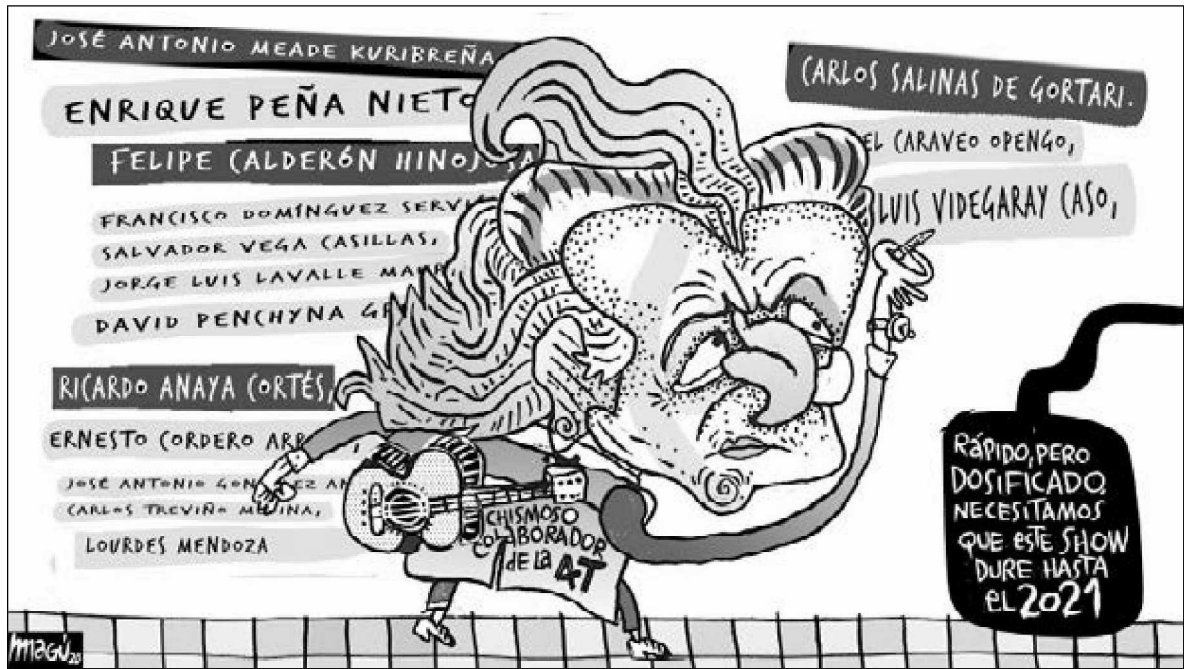 JOSÉ ANTONIO MEADE KURIBREÑA
ENRIQUE PEÑA NIETO
FELIPE CALDERÓN HINOJOSA
FRANCISCO DOMÍNGUEZ SERVI
SALVADOR VEGA CASILLAS,
JORGE LUIS LAVALLE MAUR
DAVID PENCHYNA GR
RICARDO ANAYA CORTÉS,
ERNESTO CORDERO ARR
JOSÉ ANTONIO GONZÁLEZ AN
CARLOS TREVIÑO MEDINA,
LOURDES MENDOZA
CARLOS SALINAS DE GORTARI.
EL CARAVEO OPENGO,
LUIS VIDEGARAY CASO,
CHISMOSO
COLABORADOR
de la 4T
RÁPIDO, PERO
DOSIFICADO.
NECESITAMOS
QUE ESTE SHOW
DURE HASTA
EL 2021
MAGÚ 20